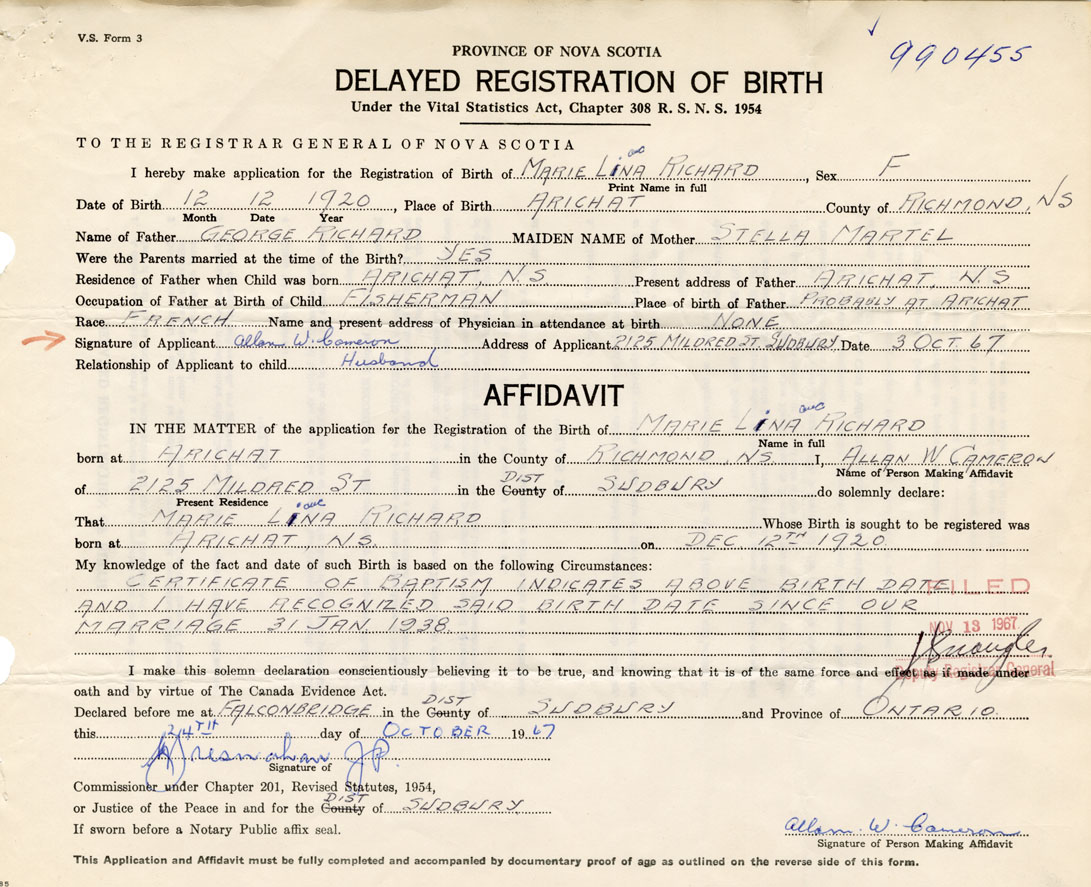 V.S. Form 3
990455
PROVINCE OF NOVA SCOTIA
DELAYED REGISTRATION OF BIRTH
Under the Vital Statistics Act, Chapter 308 R. S. N. S. 1954
TO THE REGISTRAR GENERAL OF NOVA SCOTIA
I hereby make application for the Registration of Birth of MARIE LINA RICHARD, Sex F
Print Name in full
Date of Birth 12 12 1920, Place of Birth ARICHAT County of RICHMOND, NS
Month Date Year
Name of Father GEORGE RICHARD MAIDEN NAME of Mother STELLA MARTEL
Were the Parents married at the time of the Birth? YES
Residence of Father when Child was born ARICHAT, N.S Present address of Father ARICHAT, N.S
Occupation of Father at Birth of Child FISHERMAN Place of birth of Father PROBABLY AT ARICHAT
Race FRENCH Name and present address of Physician in attendance at birth NONE
Signature of Applicant Allan W. Cameron Address of Applicant 2125 MILDRED ST. SUDBURY Date 3 OCT. 67
Relationship of Applicant to child Husband
AFFIDAVIT
IN THE MATTER of the application for the Registration of the Birth of MARIE LINA RICHARD
Name in full
born at ARICHAT in the County of RICHMOND, NS I, ALLAN W CAMERON
Name of Person Making Affidavit
of 2125 MILDRED ST in the County of DIST SUDBURY do solemnly declare:
Present Residence
That MARIE LINA RICHARD Whose Birth is sought to be registered was
born at ARICHAT, N.S. on DEC 12TH 1920
My knowledge of the fact and date of such Birth is based on the following Circumstances:
CERTIFICATE OF BAPTISM INDICATES ABOVE BIRTH DATE
FILED
AND I HAVE RECOGNIZED SAID BIRTH DATE SINCE OUR
MARRIAGE 31 JAN. 1938
NOV 13 1967
I make this solemn declaration conscientiously believing it to be true, and knowing that it is of the same force and effect as if made under
Deputy Registrar General
oath and by virtue of The Canada Evidence Act.
Declared before me at FALCONBRIDGE in the County DIST of SUDBURY and Province of ONTARIO.
this 24TH day of OCTOBER 1967
J.P.
Signature of
Commissioner under Chapter 201, Revised Statutes, 1954,
or Justice of the Peace in and for the County DIST of SUDBURY
If sworn before a Notary Public affix seal.
Allan W. Cameron
Signature of Person Making Affidavit
This Application and Affidavit must be fully completed and accompanied by documentary proof of age as outlined on the reverse side of this form.
85